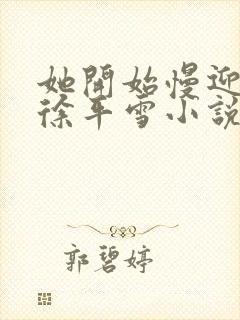 她開始慢迎
徐平雪小說
郭碧婷